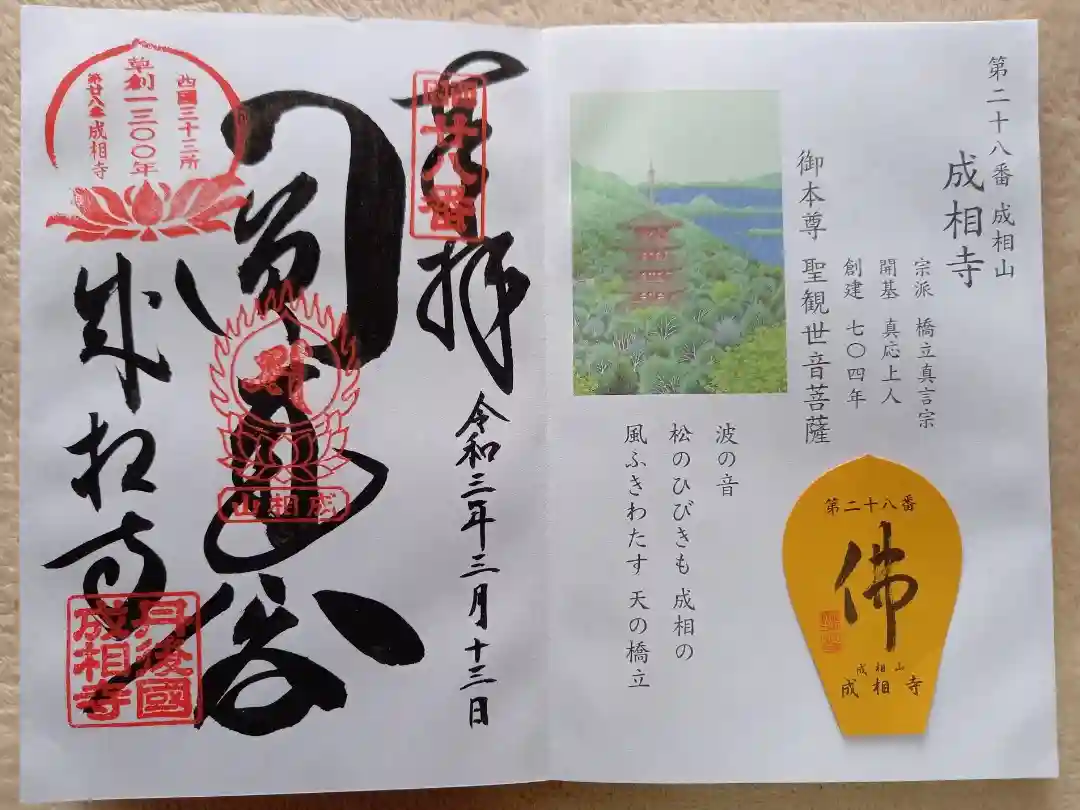 第二十八番 成相山
成相寺
宗派 橋立真言宗
開基 真応上人
創建 七〇四年
御本尊 聖観世音菩薩
波の音
松のひびきも 成相の
風ふきわたす 天の橋立
第二十八番
佛
成相山
成相寺
西國廿八番
奉拝
令和三年三月十三日
成相山
西國三十三所
草創一三〇〇年
第廿八番 成相寺
成相寺
丹後國
成相寺